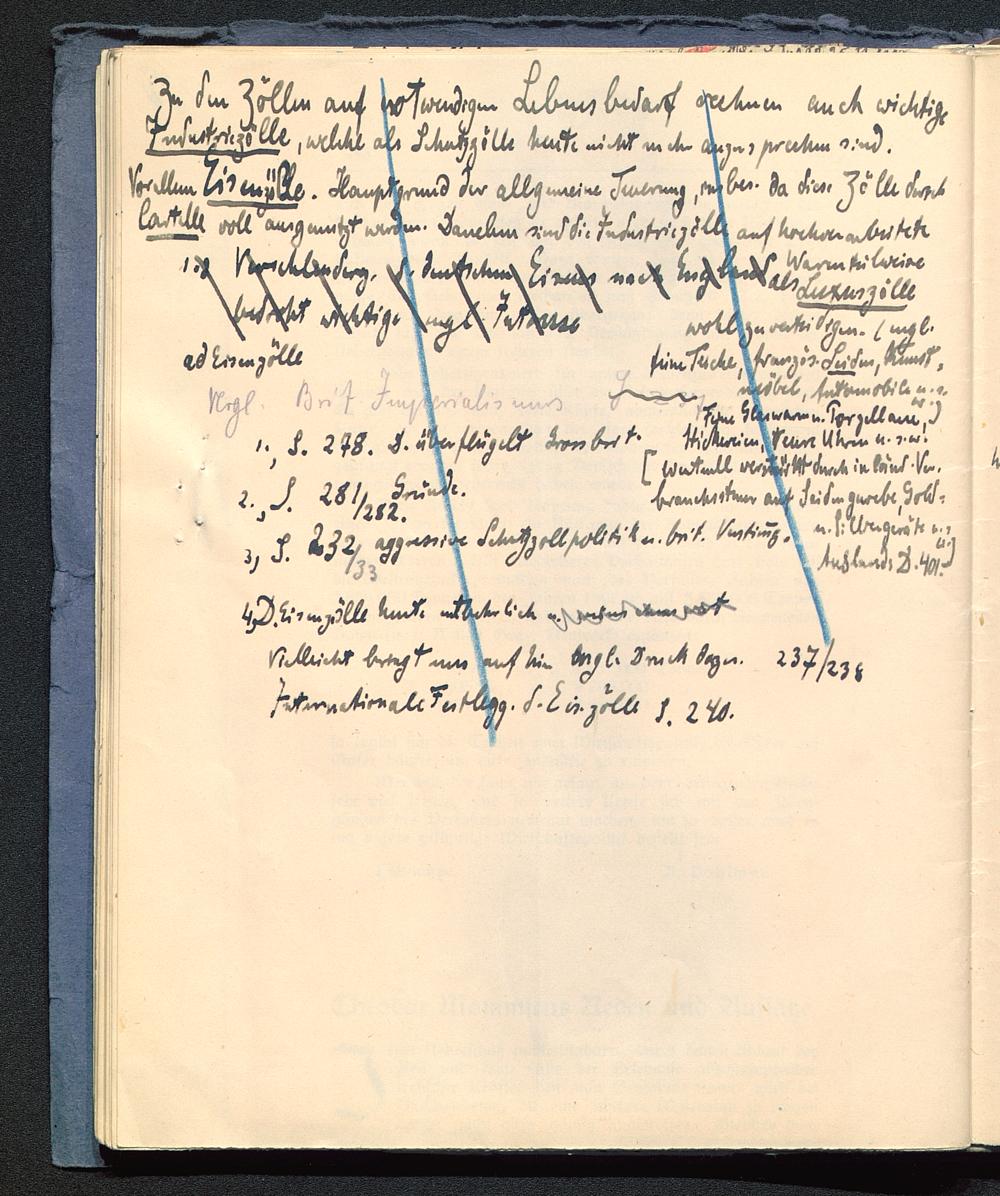 Zu den Zöllen auf notwendigen Lebensbedarf rechnen auch wichtige
Industriezölle, welche als Schutzzölle heute nicht mehr anzusprechen sind.
Vor allem Eisenzölle. Hauptgrund der allgemeine Teuerung, insbes. da diese Zölle durch
Cartelle voll ausgenutzt werden. Daneben sind die Industriezölle auf hochverarbeitete
Verschleuderg. d. deutschen Eisens nach England
bedroht wichtige engl. Interesse
Waren teilweise
als Luxuszölle
wohl zu verteidigen. (engl.
feine Tuche, französ. Seiden, Kunst-
möbel, Automobile u.s.w.
Feine Glaswaren u. Porzellane,)
Stickereien, teure Uhren u.s.w.
[eventuell verstärkt durch inländ. Ver-
brauchssteuer auf Seidengewebe, Gold-
u. Silbergeräte u.s.w.]
Auslands D. 401.
ad Eisenzölle
Vergl. Brit. Imperialismus
1., S. 278. D. überflügelt Grossbrit.
2., S. 281/282. Gründe.
3, S. 232/33 aggressive Schutzzollpolitik u. brit. Verstimg.
4, D. Eisenzölle heute entbehrlich
Vielleicht bringt uns auf hin engl. Druck dazu. 237/238
Internationale Festlegg. d. Eis.zölle S. 240.